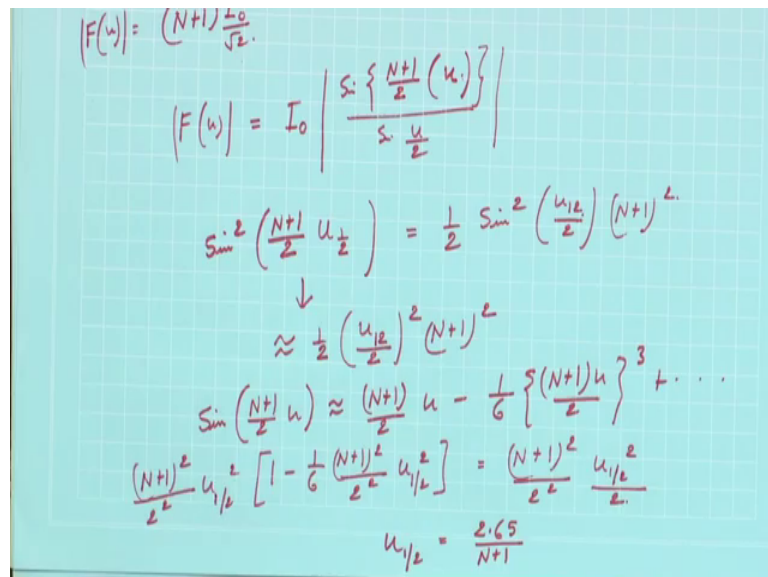 |F(u)| = (N+1) I₀/√2.
|F(u)| = I₀ | Si { N+1/2 (u.) } / S. u/2 |
Sin² ( N+1/2 u_½ ) = 1/2 Sin² ( u_12/2 ) (N+1)².
↓
≈ 1/2 ( u_12/2 )² (N+1)²
Sin ( N+1/2 u ) ≈ (N+1)/2 u - 1/6 { (N+1)u/2 }³ + · · ·
(N+1)²/2² u_1/2² [ 1 - 1/6 (N+1)²/2² u_1/2² ] = (N+1)²/2² u_1/2²/2.
u_1/2 = 2.65/N+1